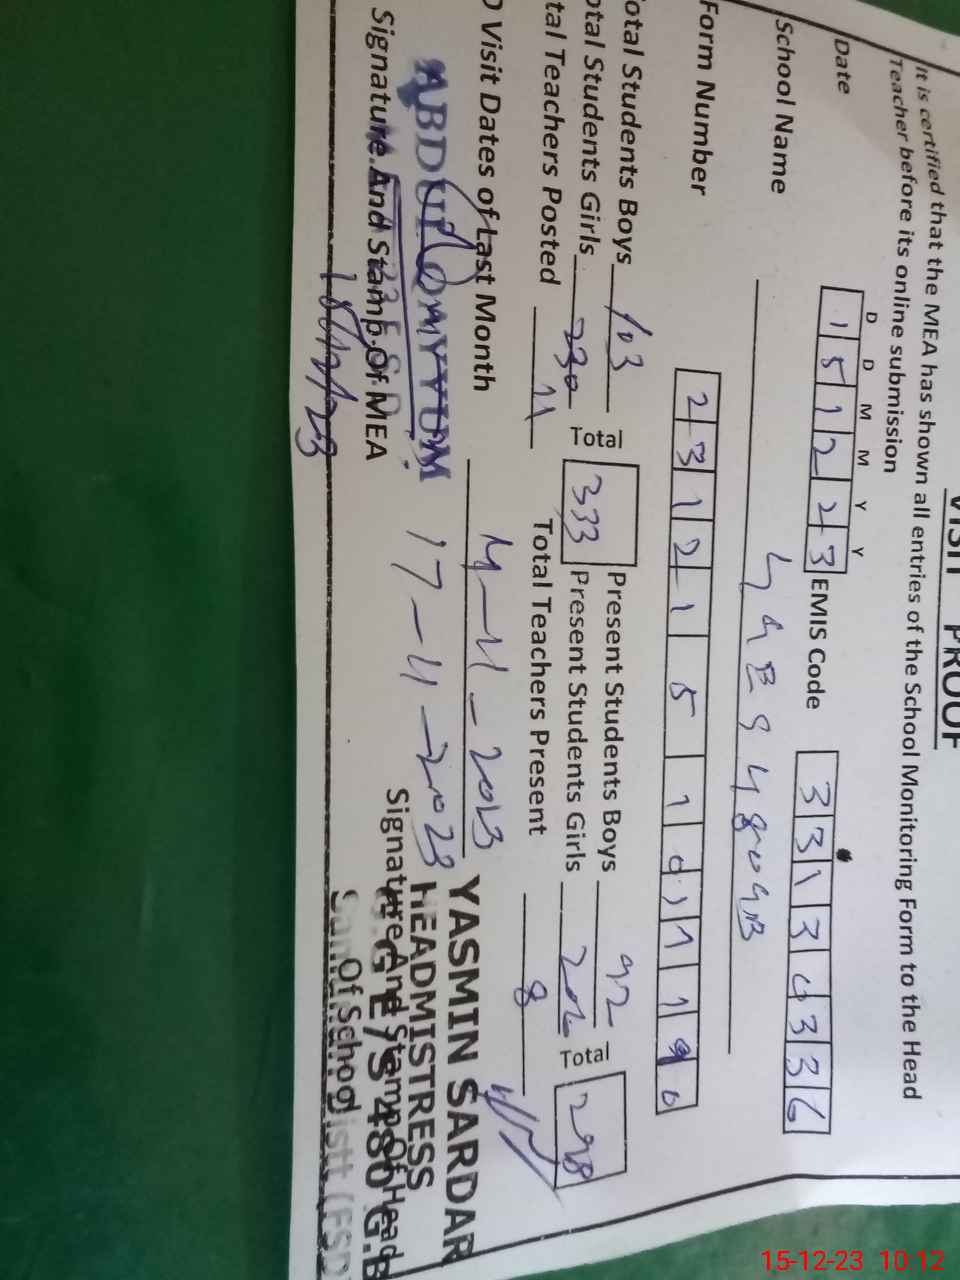 VISIT PROOF
It is certified that the MEA has shown all entries of the School Monitoring Form to the Head
Teacher before its online submission
D D M M Y Y
Date 1 5 1 2 2 3 EMIS Code 3 3 1 3 0 3 3 6
School Name
Form Number 2 3 1 2 1 5 1 0 1 1 1 9 0
Total Students Boys 103 Present Students Boys 92
Total 333 Total 298
Total Students Girls 230 Present Students Girls 206
Total Teachers Posted 11 Total Teachers Present 8
Visit Dates of Last Month
17-11-2023
ABDUL QAYYUM
YASMIN SARDAR
HEADMISTRESS
G.G E/S 480 G.B
Signature And Stamp Of MEA
Signature And Stamp Of Head
Of School
Distt (FSD
15/12/23
15-12-23 10:12